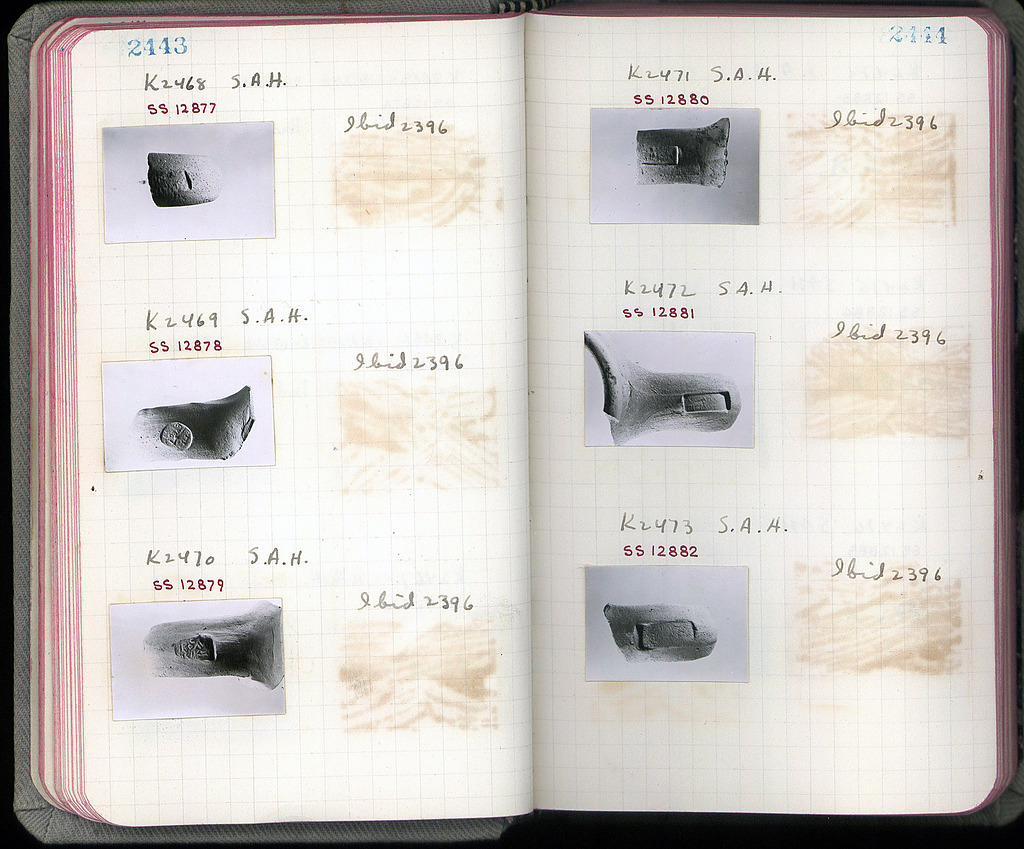 2443
K2468 S.A.H.
SS 12877
Ibid 2396
K2469 S.A.H.
SS 12878
Ibid 2396
K2470 S.A.H.
SS 12879
Ibid 2396
2444
K2471 S.A.H.
SS 12880
Ibid 2396
K2472 S A.H.
SS 12881
Ibid 2396
K2473 S.A.H.
SS 12882
Ibid 2396